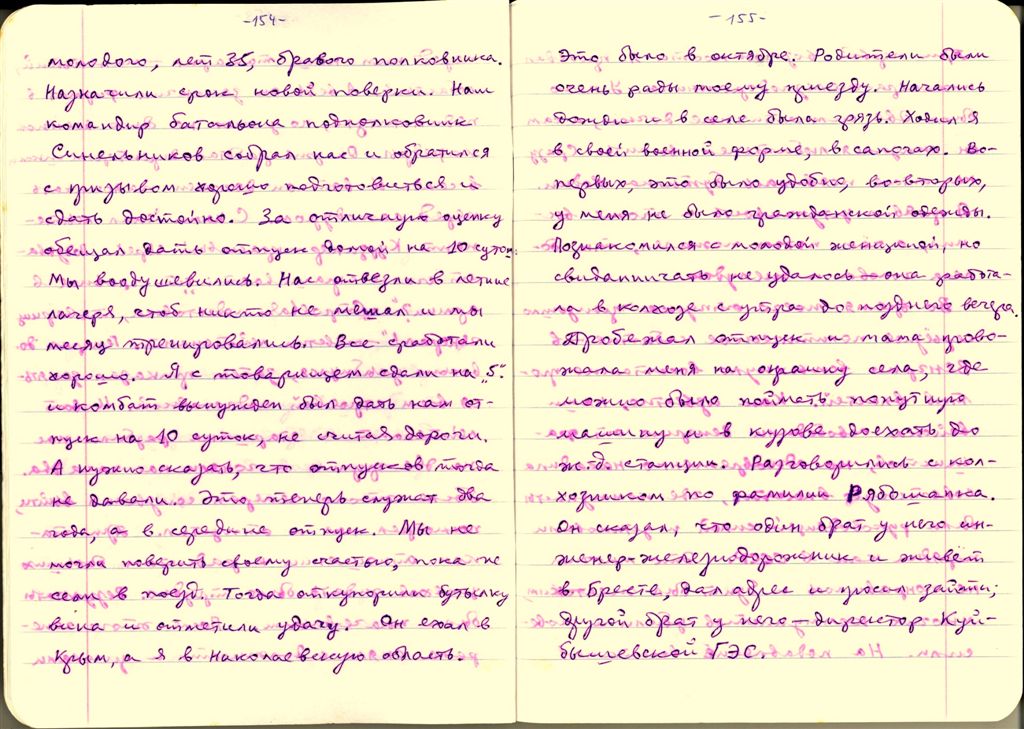 -154-
молодого, лет 35, бравого полковника.
Назначили срок новой поверки. Наш
командир батальона подполковник
Синельников собрал нас и обратился
с призывом хорошо подготовиться и
сдать достойно. За отличную оценку
обещал дать отпуск домой на 10 суток.
Мы воодушевились. Нас отвезли в летние
лагеря, чтоб никто не мешал и мы
месяц тренировались. Все сработали
хорошо. Я с товарищем сдали на „5“.
и комбат вынужден был дать нам от-
пуск на 10 суток, не считая дороги.
А нужно сказать, что отпусков тогда
не давали. Это теперь служат два
года, а в середине отпуск. Мы не
могли поверить своему счастью, пока не
сели в поезд. Тогда откупорили бутылку
вина и отметили удачу. Он ехал в
Крым, а я в Николаевскую область.
-155-
Это было в октябре. Родители были
очень рады моему приезду. Начались
дожди и в селе была грязь. Ходил я
в своей военной форме, в сапогах. Во-
первых, это было удобно, во-вторых,
у меня не было гражданской одежды.
Познакомился с молодой женщиной, но
свиданничать не удалось – она работа-
ла в колхозе с утра до позднего вечера.
Пробежал отпуск и мама прово-
жала меня на окраину села, где
можно было поймать попутную
машину и в кузове доехать до
ж.д. станции. Разговорились с кол-
хозником по фамилии Рябошапка.
Он сказал, что один брат у него ин-
женер-железнодорожник и живет
в Бресте, дал адрес и просил зайти;
другой брат у него – директор Куй-
бышевской ГЭС.